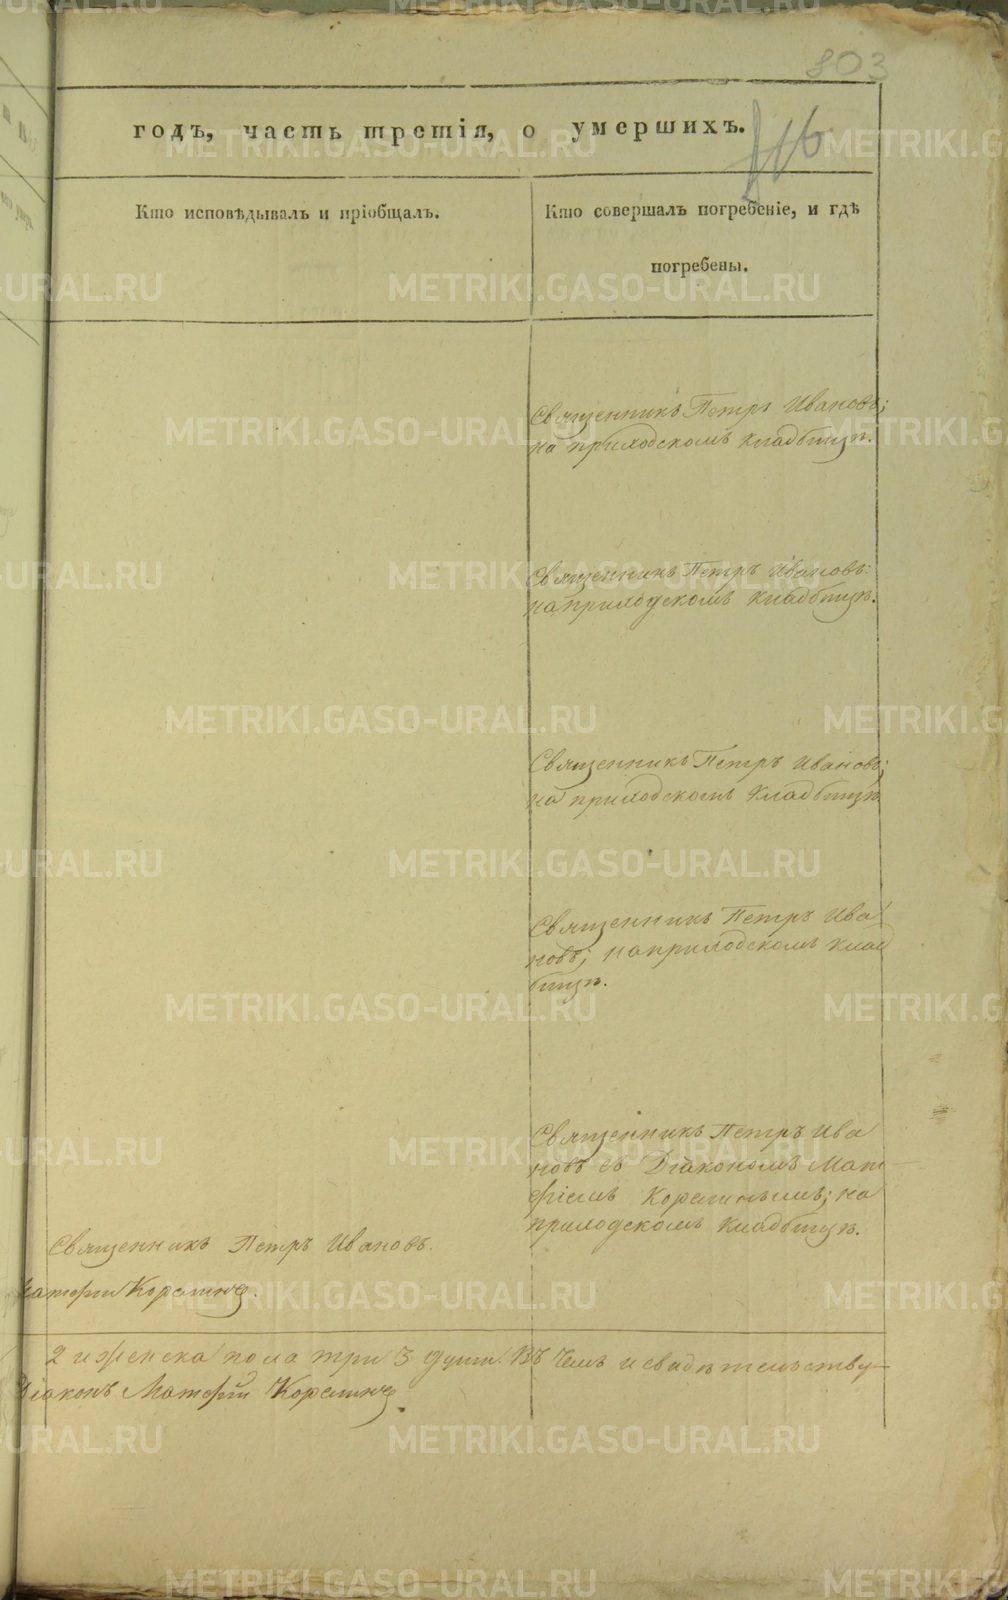 803
годъ, часть третія, о умершихъ.
116
Кто исповѣдывалъ и пріобщалъ.
Кто совершалъ погребеніе, и гдѣ
погребены.
Священникъ Петръ Ивановъ;
на приходскомъ кладбищѣ.
Священникъ Петръ Ивановъ:
на приходскомъ кладбищѣ.
Священникъ Петръ Ивановъ;
на приходскомъ кладбищѣ.
Священникъ Петръ Ива
новъ; на приходскомъ клад
бищѣ.
Священникъ Петръ Ива
новъ съ Діакономъ Мат
фіемъ Корелинымъ; на
приходскомъ кладбищѣ.
Священникъ Петръ Ивановъ.
Матфій Корелинъ.
2 и женска пола три 3 души. Въ чемъ и свидѣтельству
Діаконъ Матфій Корелинъ
METRIKI.GASO-URAL.RU